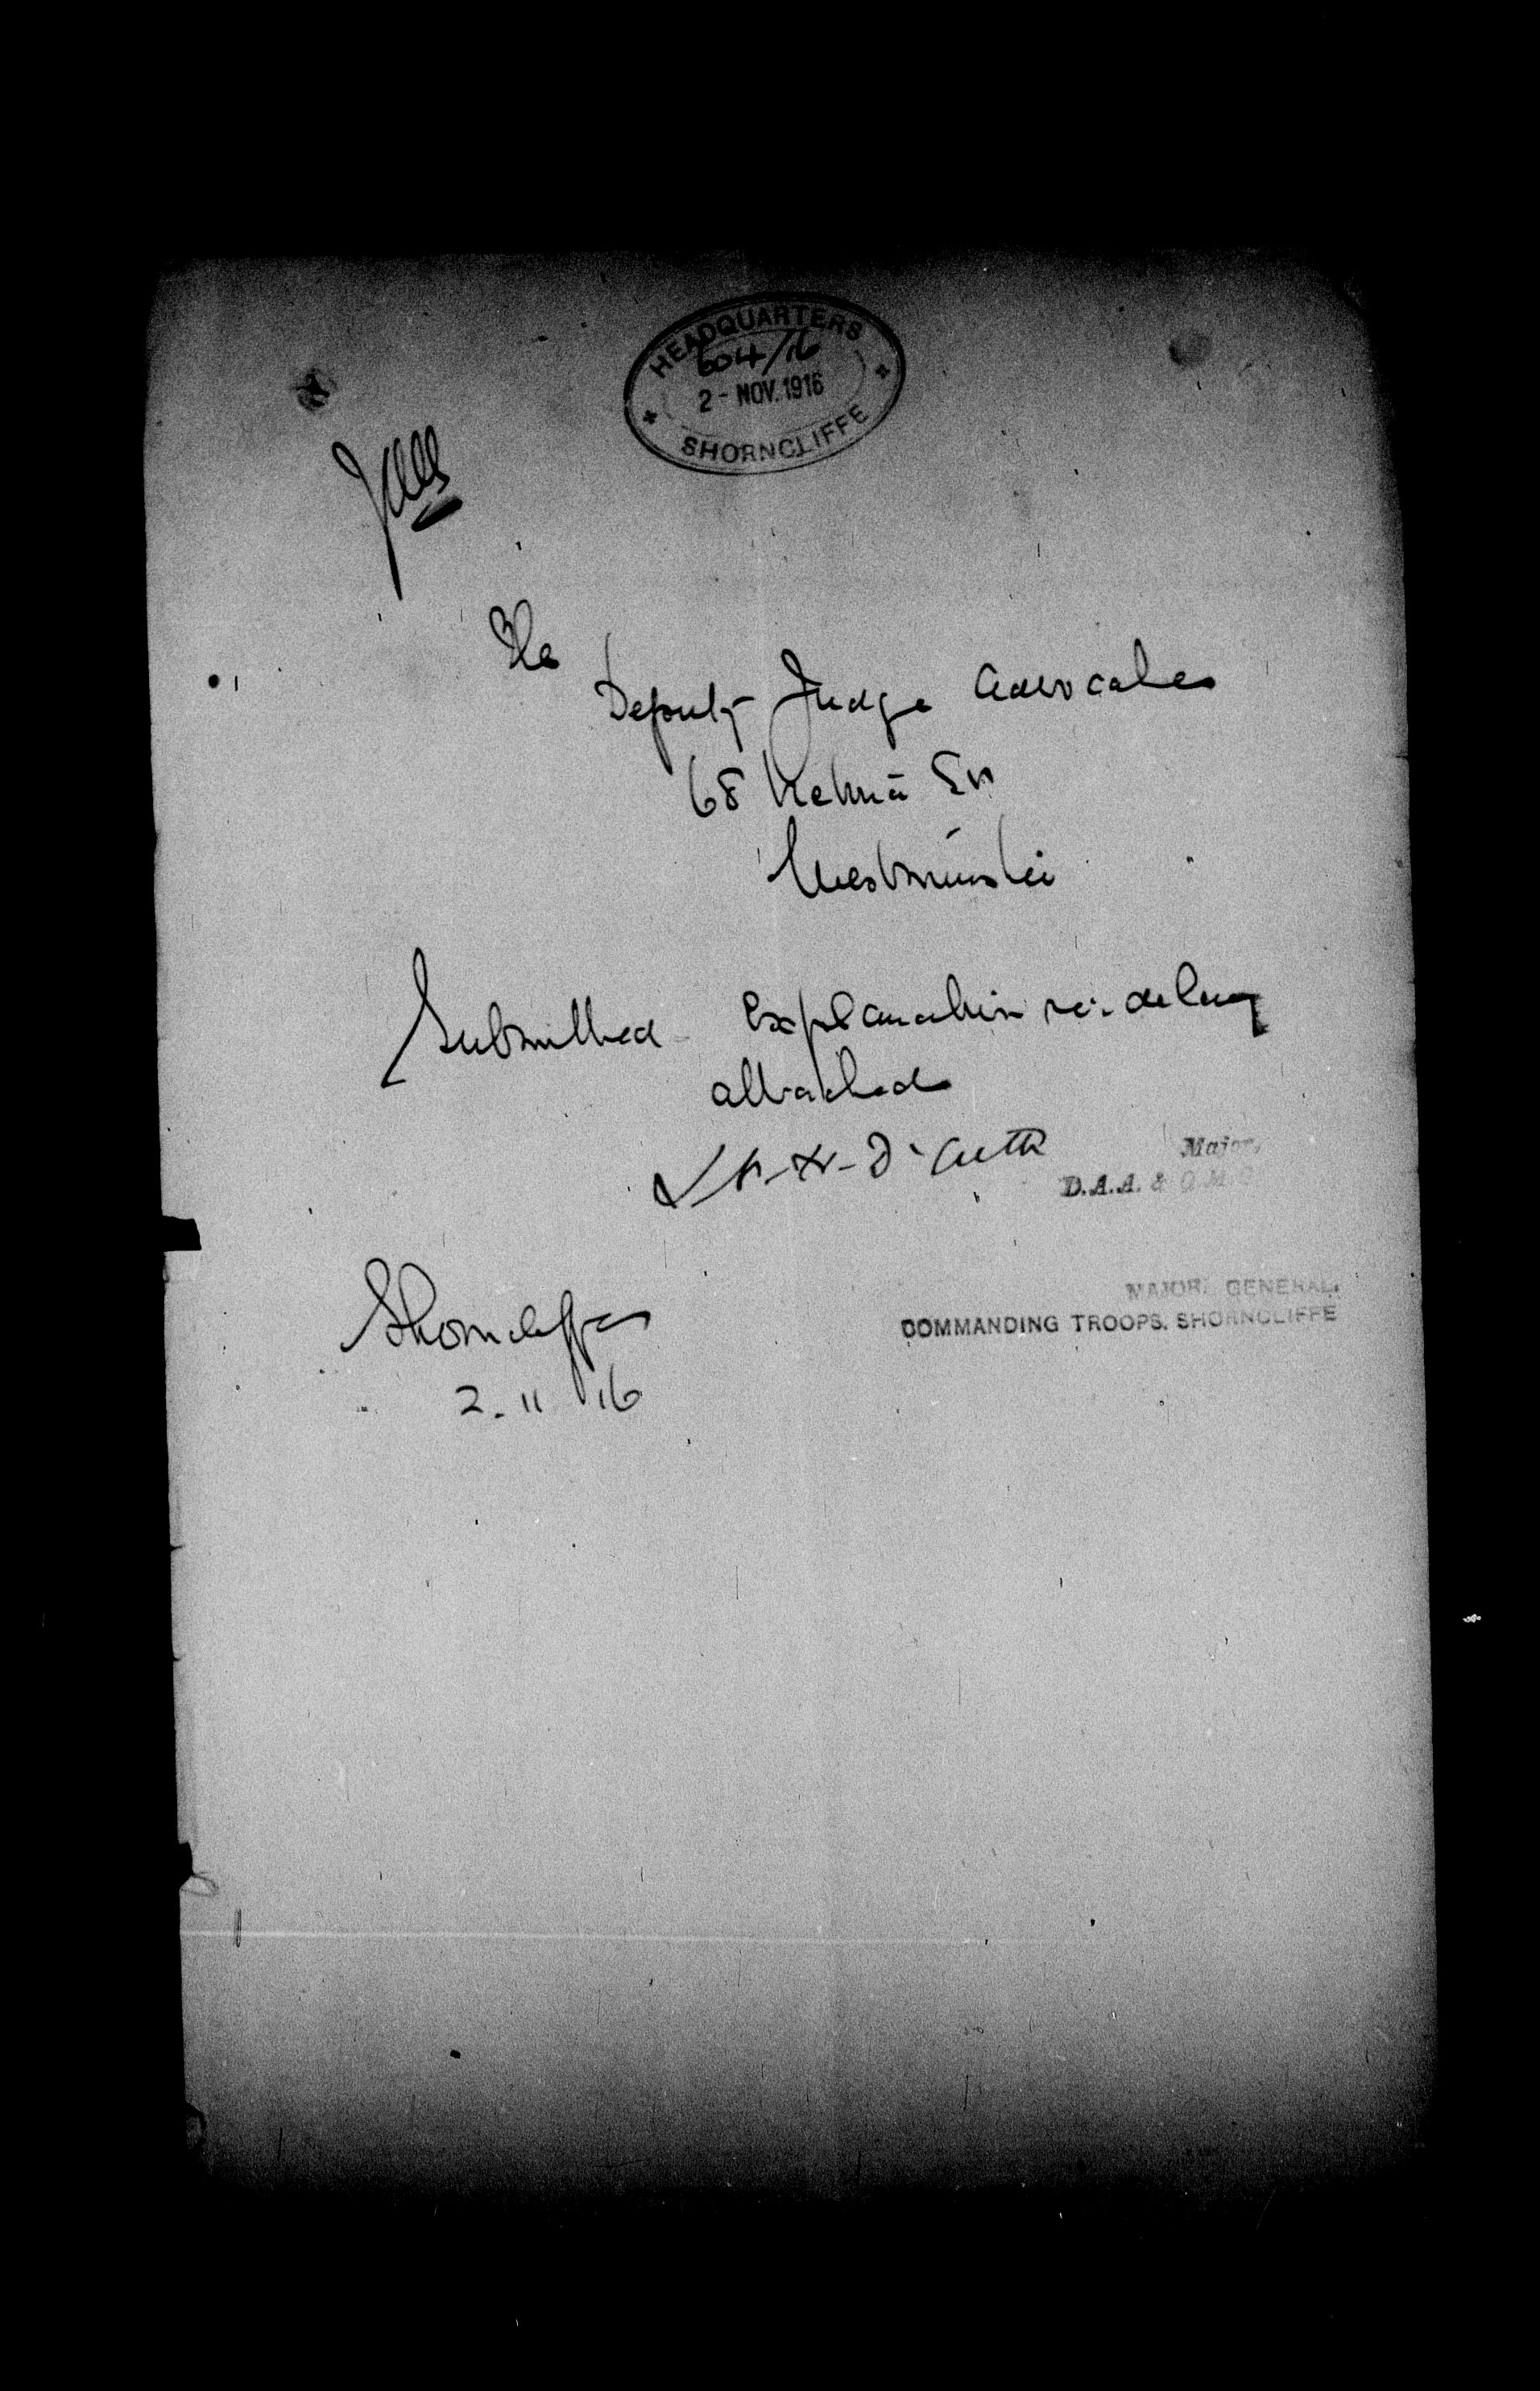 HEADQUARTERS
604/16
2 - NOV. 1916
SHORNCLIFFE
The
Deputy Judge Advocate
68 Victoria St
Westminster
Submitted - Explanation re: delay
attached
Major,
D.A.A. & Q.M.G.
MAJOR. GENERAL.
COMMANDING TROOPS. SHORNCLIFFE
Shorncliffe
2. 11 16